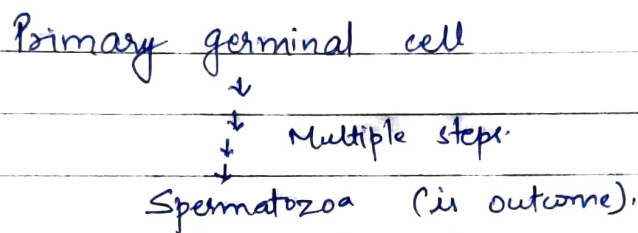 Primary germinal cell
↓
↓ Multiple steps.
↓
↓
Spermatozoa (is outcome).